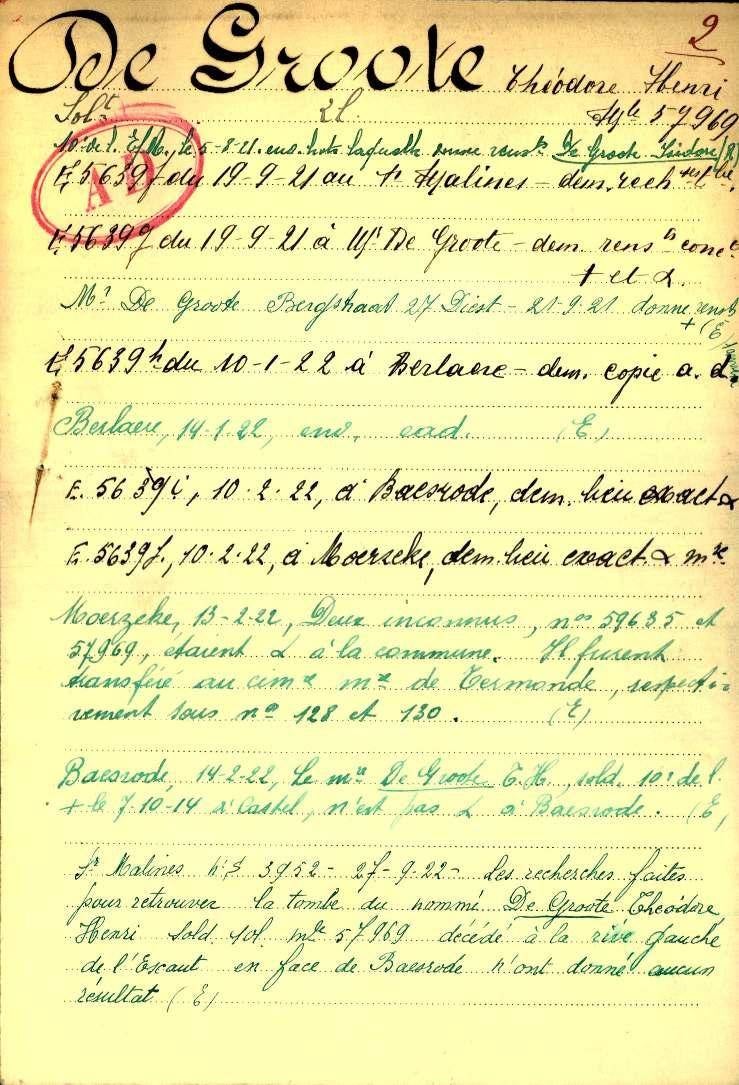 2
De Groote Théodore Henri
Solt 2l. Mle 57969
10e de l. E/R., le 5-8-21 env. liste laquelle donne renste De Groote Isidore (R)
E 5639f du 19-9-21 au Malines - dem. rech
AD
E 5639g du 19-9-21 à Mr De Groote - dem. rensts conc
+ et α.
Mr De Groote Bergstraat 27 Diest - 21-9-21 donne rensts
+ (E
E 5639h du 10-1-22 à Berlaere - dem. copie a. d.
Berlaere, 14.1.22, env. cad. (E)
E. 5639i, 10-2-22, à Baesrode, dem. lieu exact α
E. 5639j., 10-2-22, à Moerzeke, dem. lieu exact α mre
Moerzeke, 13-2-22, Deux inconnus, nos 59635 et
57969, étaient α à la commune. Il furent
transféré au cimre mre de Termonde, respecti-
vement sous no 128 et 130. (E)
Baesrode, 14-2-22, Le mre De Groote T.H., sold. 10e de l.
+ le 7-10-14 à Castel, n'est pas α à Baesrode. (E)
Malines n: S 3952 - 27-9-22 - Les recherches faites
pour retrouver la tombe du nommé De Groote Théodore,
Henri Sold 10l mle 57969 décédé à la rive gauche
de l'Escaut en face de Baesrode n'ont donné aucun
résultat (E)